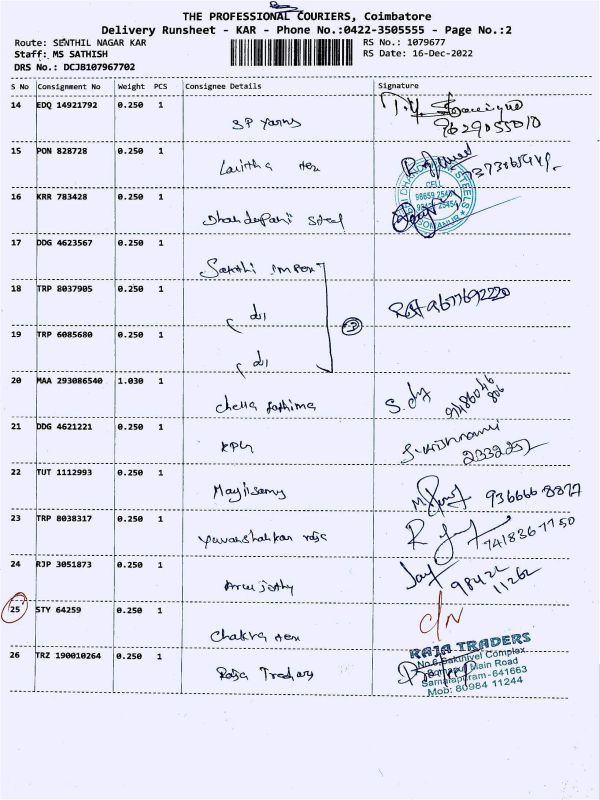 THE PROFESSIONAL COURIERS, Coimbatore
Delivery Runsheet - KAR - Phone No.:0422-3505555 - Page No.:2
Route: SENTHIL NAGAR KAR
RS No.: 1079677
Staff: MS SATHISH
RS Date: 16-Dec-2022
DRS No.: DCJB107967702
S No Consignment No Weight PCS Consignee Details Signature
14 EDQ 14921792 0.250 1
SP Yarns
9629055010
15 PON 828728 0.250 1
Lavitha Tex
16 KRR 783428 0.250 1
CELL
STEELS
Dhandapani Steel
17 DDG 4623567 0.250 1
Sakthi impex
18 TRP 8037905 0.250 1
do
9677692220
3
19 TRP 6085680 0.250 1
do
20 MAA 293086540 1.030 1
Chella Fathima
21 DDG 4621221 0.250 1
KPG
S. Krishnaveni
2332257
22 TUT 1112993 0.250 1
23 TRP 8038317 0.250 1
Yuvanshankar raja
24 RJP 3051873 0.250 1
Arul jothy
98422
11262
25 STY 64259 0.250 1
Chakra tex
26 TRZ 190010264 0.250 1
Raja Traders
RAJA TRADERS
No.6, Sakthivel Complex
Main Road
Samalapuram-641663
Mob: 80984 11244